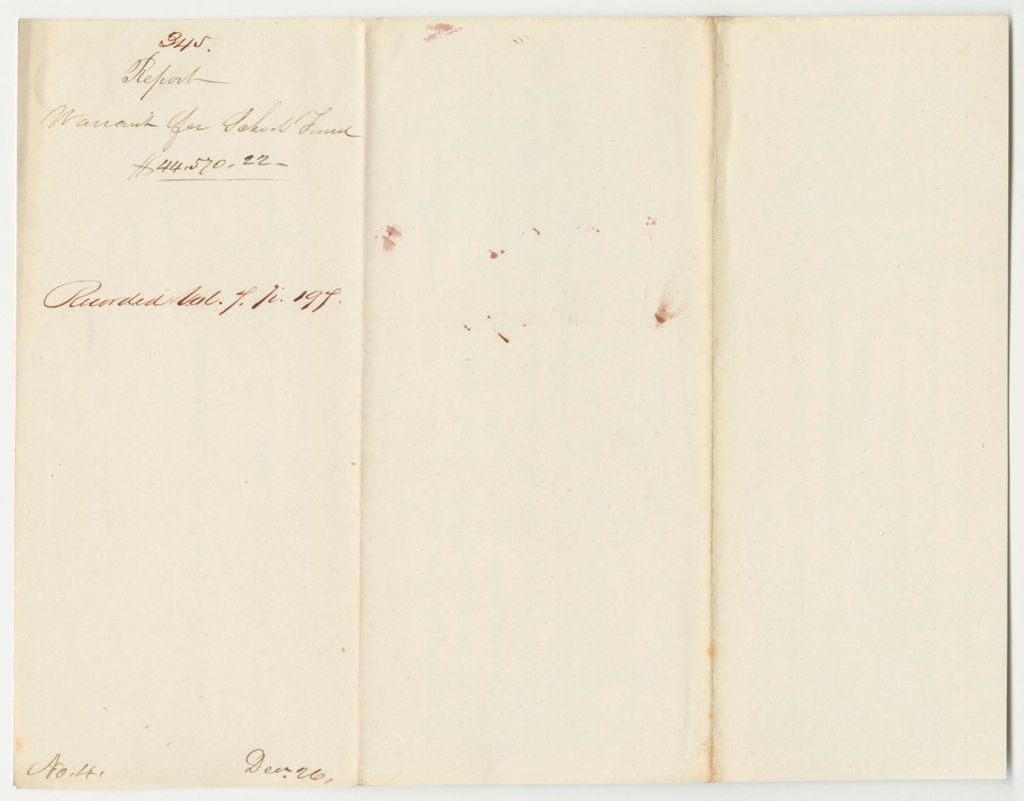 345.
Report
Warrant for School Fund
$44.570.22
Recorded Vol. 7. p. 197.
No. 4. Decr. 26,